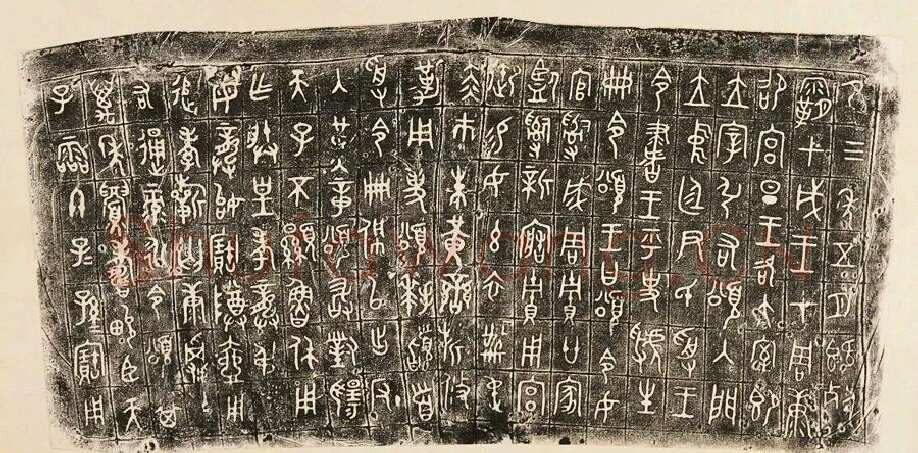 隹三年五月既死
霸甲戌王才周康
卲宮旦王各大室即
立宰弘右頌入門
立中廷尹氏受王
令書王乎史虢生
冊令頌王曰頌令女
官𤔲成周貯廿家
監𤔲新造貯用宮
御易女玄衣黹屯
赤巿朱黃䜌旂攸
勒用事頌拜𩒨首
受令冊佩以出反
入堇章頌敢對揚
天子不顯魯休用
乍朕皇考龏弔皇
母龏始寶尊壺用
追孝祈匄康𠭯屯
右通彔永令頌其
萬年眉壽畯臣天
子霝冬子孫寶用